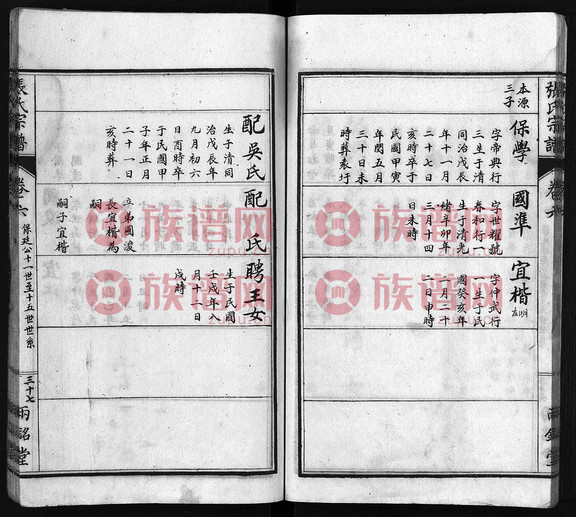 張氏宗譜
卷六
兩銘堂
本源
三子
保學
字帝興行
三生于清
同治戊辰
年十一月
二十七日
亥時卒于
民國甲寅
年閏五月
三十日未
時葬袁圩
國準
字世耀號
春和行一
生于清光
緒辛卯年
三月十四
日未時
宜楷
明
左
字仲武行
一生于民
國癸亥年
一月二十
二日申時
配吳氏
生于清同
治戊辰年
九月初六
日酉時卒
于民國甲
子年正月
二十一日
亥時葬
配 氏
立弟國浚
長宜楷為
嗣
嗣子宜楷
聘王女
生于民國
壬戌年八
月十二日
戌時
張氏宗譜
卷六
保廷公十一世至十五世世系
三十七
兩銘堂
族谱网
zupu.cn
族谱网
zupu.cn
族谱网
zupu.cn
族谱网
zupu.cn